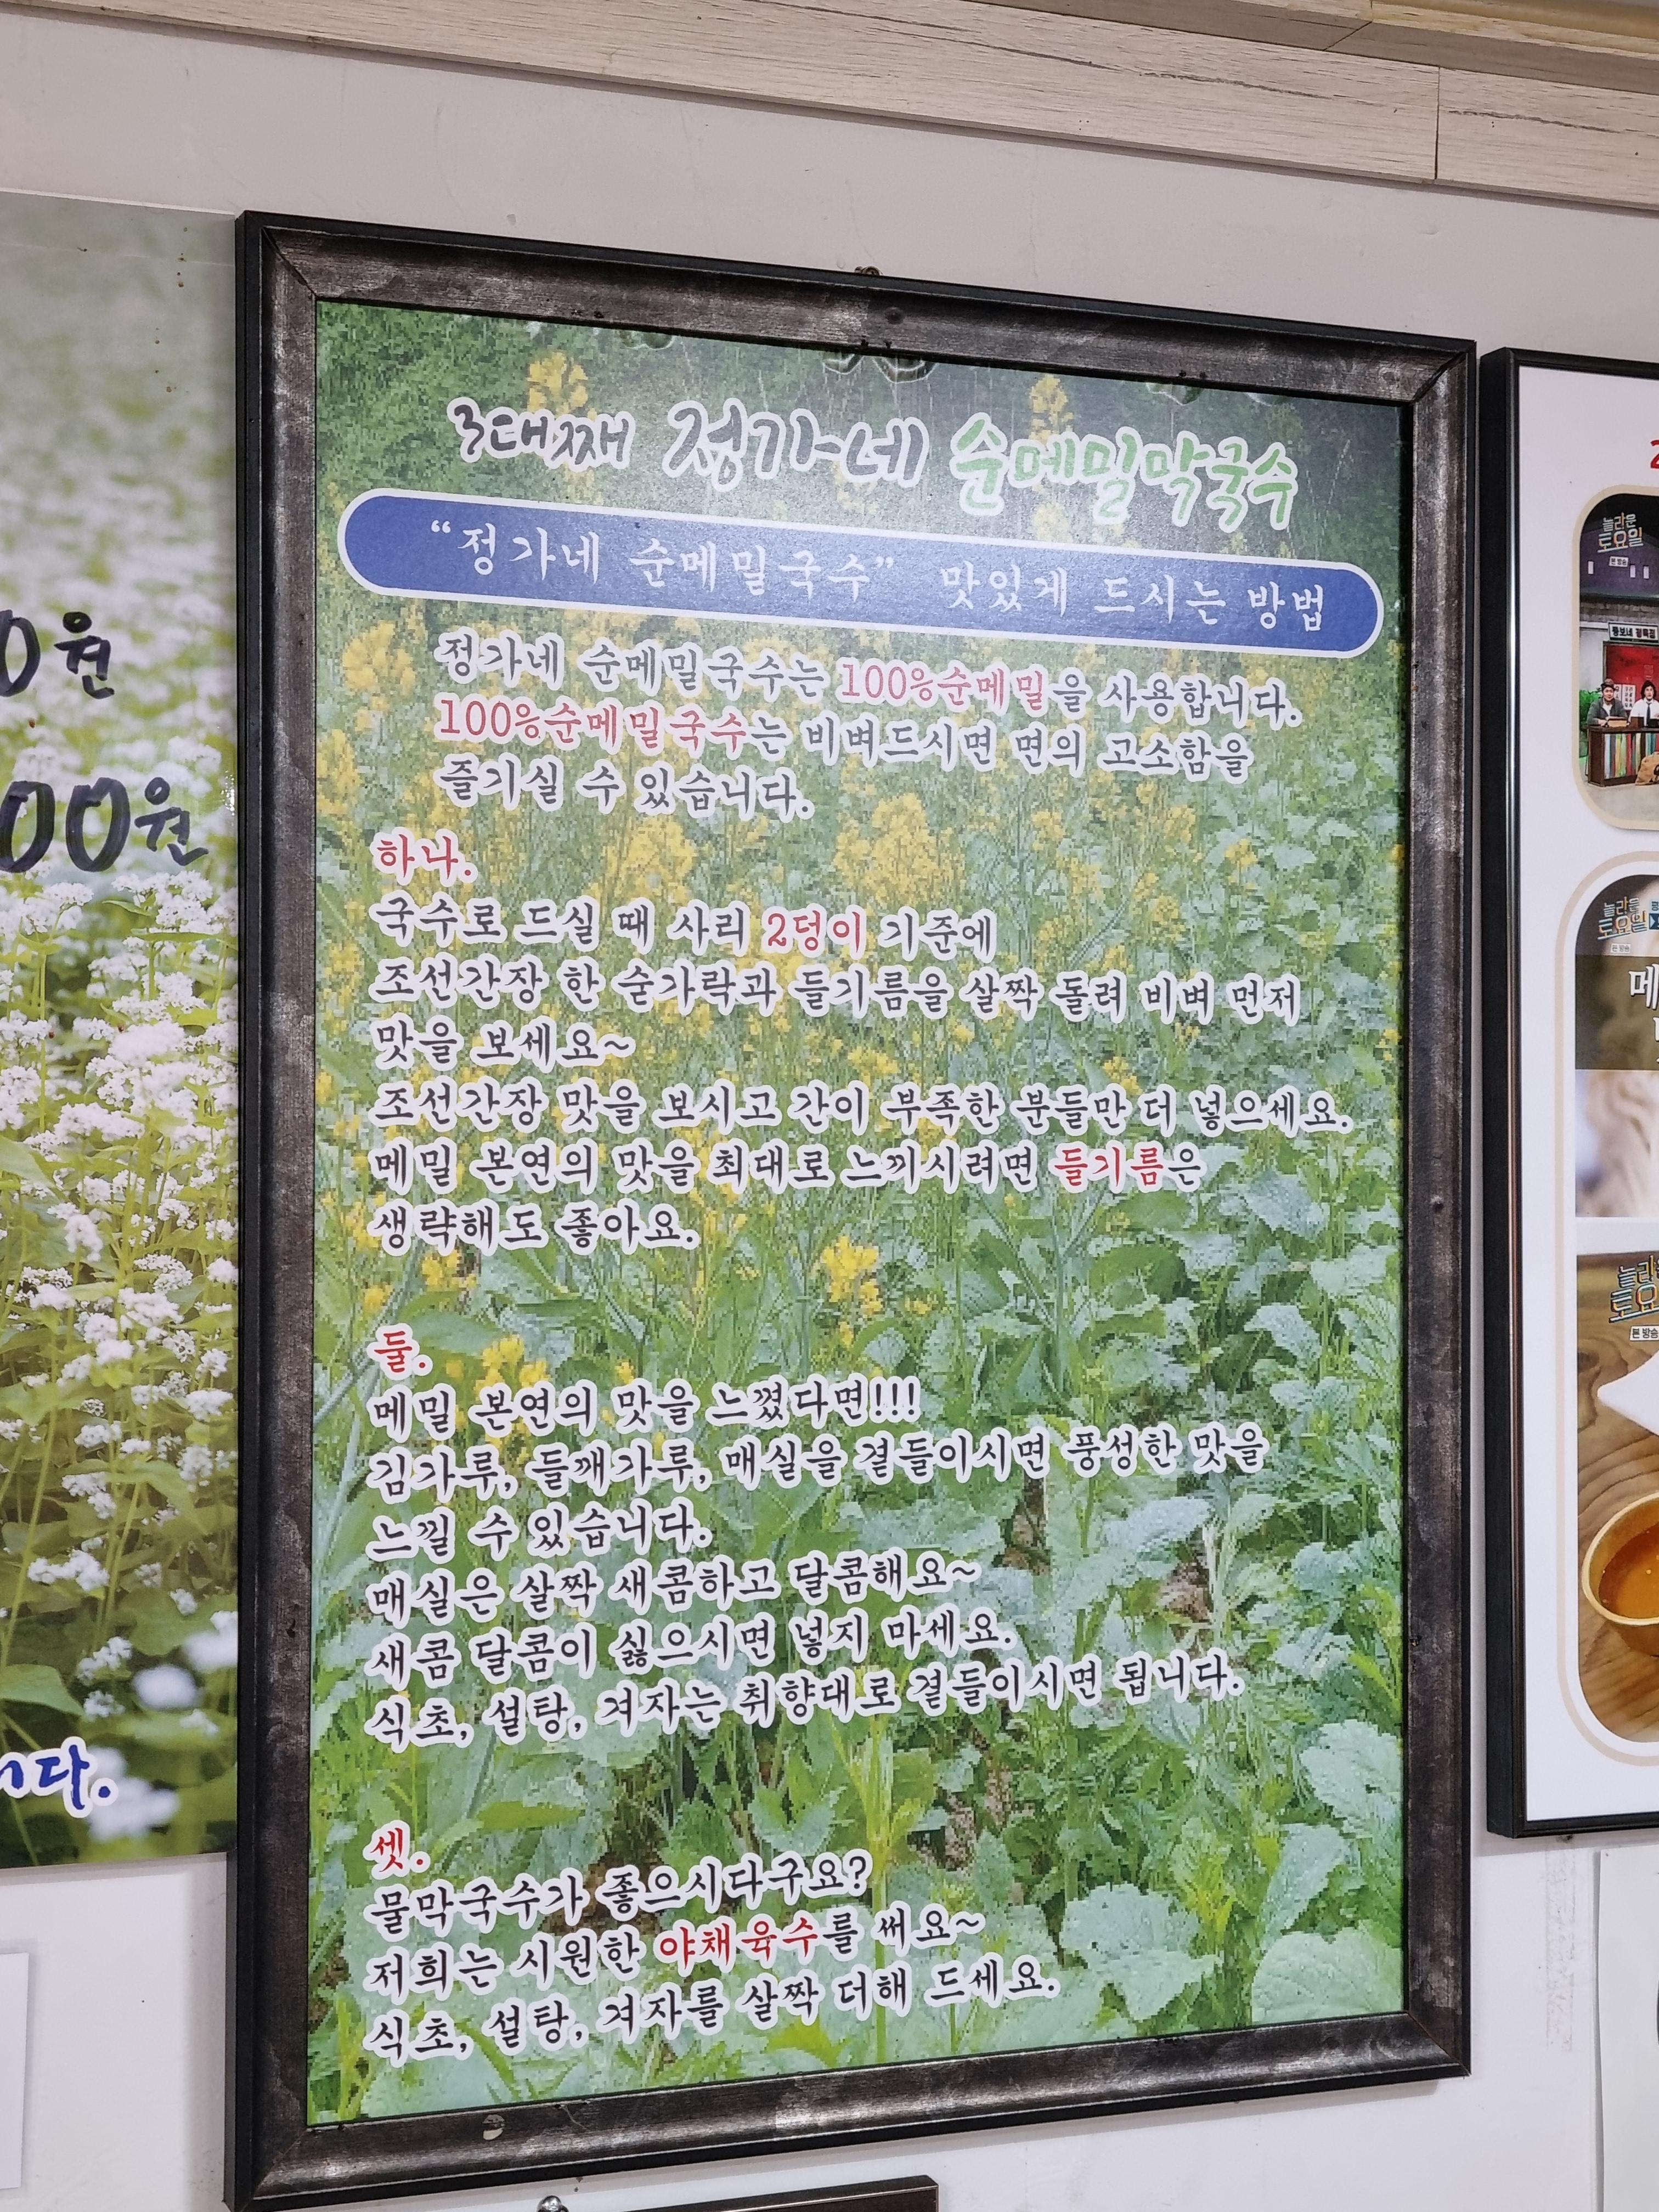 3대째 정가네 순메밀막국수
“정가네 순메밀국수” 맛있게 드시는 방법
정가네 순메밀국수는 100%순메밀을 사용합니다.
100%순메밀국수는 비벼드시면 면의 고소함을
즐기실 수 있습니다.
하나.
국수로 드실 때 사리 2덩이 기준에
조선간장 한 숟가락과 들기름을 살짝 돌려 비벼 먼저
맛을 보세요~
조선간장 맛을 보시고 간이 부족한 분들만 더 넣으세요.
메밀 본연의 맛을 최대로 느끼시려면 들기름은
생략해도 좋아요.
둘.
메밀 본연의 맛을 느꼈다면!!!
김가루, 들깨가루, 매실을 곁들이시면 풍성한 맛을
느낄 수 있습니다.
매실은 살짝 새콤하고 달콤해요~
새콤 달콤이 싫으시면 넣지 마세요.
식초, 설탕, 겨자는 취향대로 곁들이시면 됩니다.
셋.
물막국수가 좋으시다구요?
저희는 시원한 야채육수를 써요~
식초, 설탕, 겨자를 살짝 더해 드세요.
0원
00원
니다.
놀라운
토요일
본 방송
놀라운
토요일
본 방송
메
놀라운
본 방송